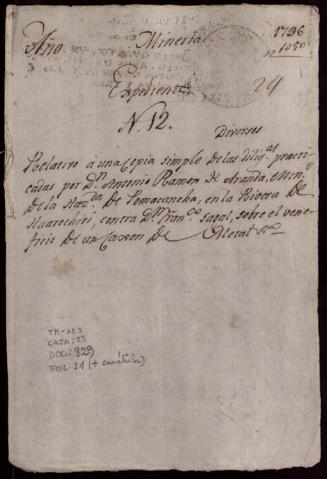 Año. Mineria 1796
n 1050
Expediente 24
N. 12. Diversos
Relativo á una Copia simple de las dilig.as practi-
cadas por D.n Antonio Ramon de Aranda, Min.o
de la Haz.da de Pomacancha, en la Rivera de
Huarochiri, contra D.n Fran.co Sagal, sobre el vene-
ficio de un Caxon de Metal &.a
TM-AD3
CAJA: 22
DOC: 329
FOL. 21 (+ carátula)